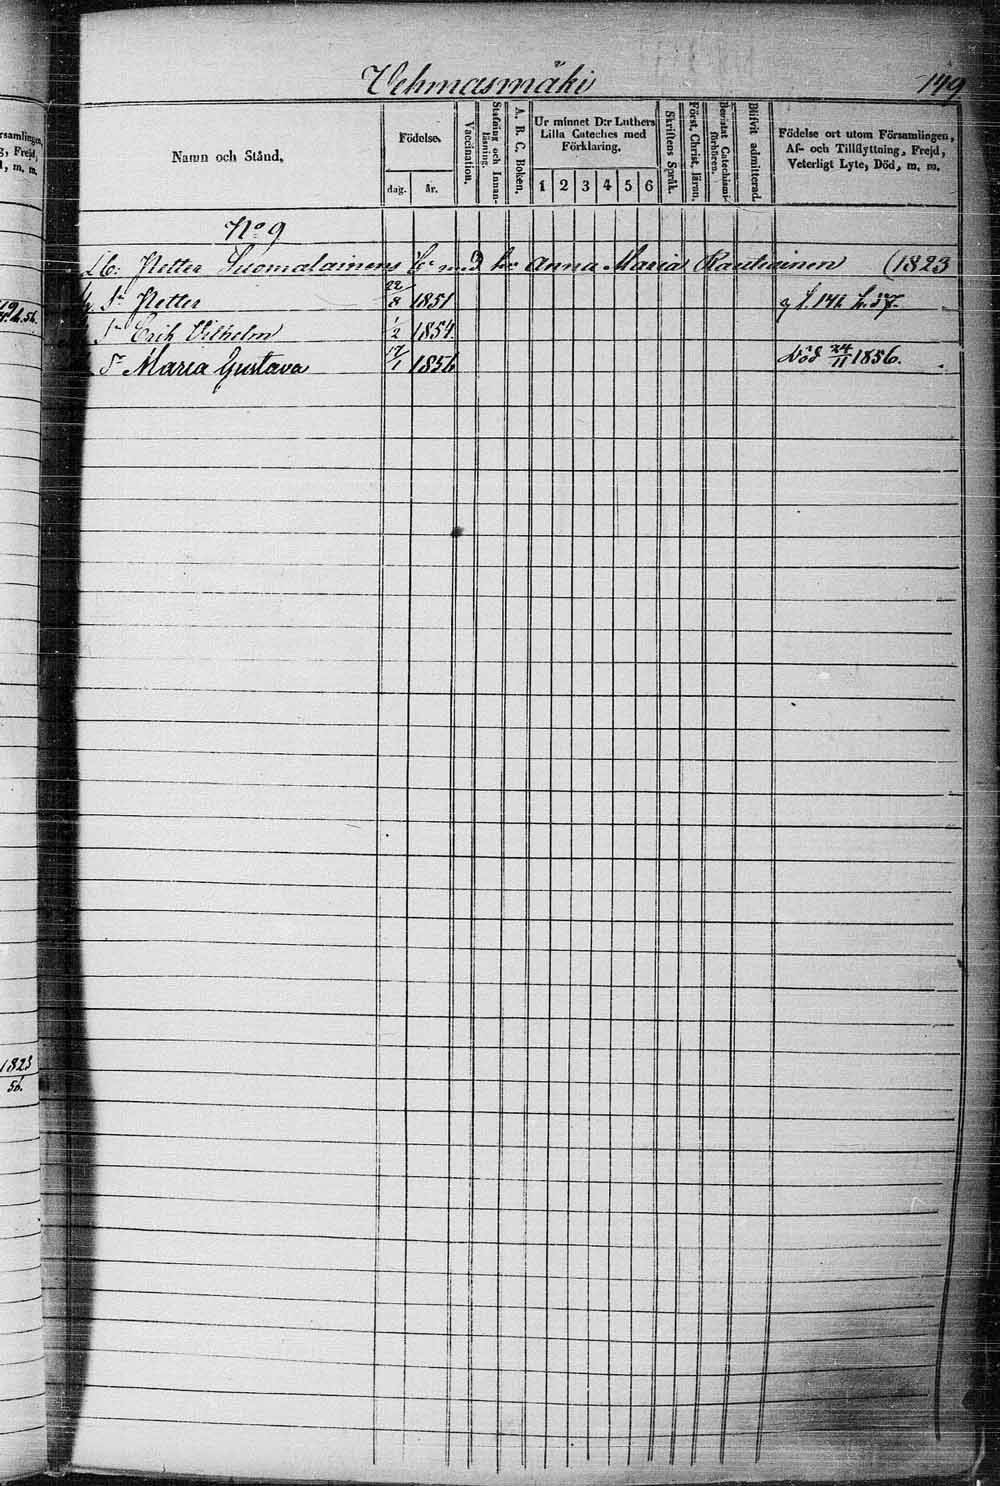 Vehmasmäki
149
Namn och Stånd.
Födelse.
dag.
år.
Vaccination.
Stafning och Innan-läsning.
A. B. C. Boken.
Ur minnet D:r Luthers
Lilla Cateches med
Förklaring.
1 2 3 4 5 6
Skriftens Språk.
Först. Christ. läran.
Bevistat Catechismi-förhören.
Blifvit admitterad.
Födelse ort utom Församlingen,
Af- och Tillflyttning, Frejd,
Veterligt Lyte, Död, m. m.
No 9
Petter Suomalainens med Anna Maria Rautiainen (1823
Sn Petter 22/8 1851 142 37.
Sn Erik Vilhelm 1/2 1854.
Maria Gustava 17/1 1856 död 24/11 1856.
1823
56.